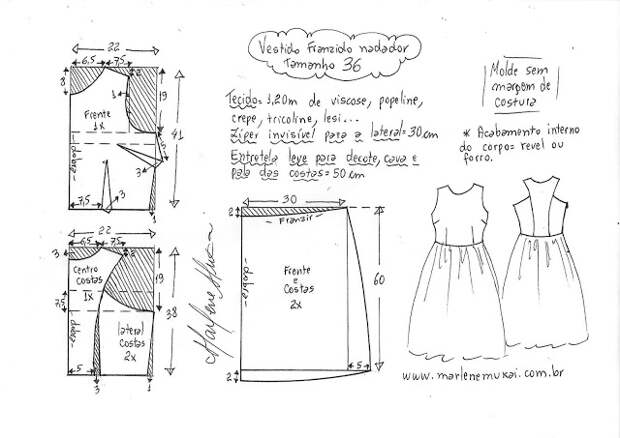 Vestido Franzido nadador
Tamanho 36
Tecido = 1,20m de viscose, popeline,
crepe, tricoline, lesi...
Zíper invisível para a lateral = 30cm
Entretela leve para decote, cava e
pala das costas = 50cm
Molde sem
margem de
costura
* Acabamento interno
do corpo = revel ou
forro.
22
6,5 7,5
8
2
1
19
Frente
1x
41
-dobra-
5
3
7,5
3
1
22
6,5 7,5
3
2
Centro
costas
1x
19
7,5
38
-dobra-
lateral
costas
2x
5
3
1
Marlene Mukai
30
2
Franzir
-dobra-
Frente
e
Costas
2x
60
5
2
www.marlenemukai.com.br